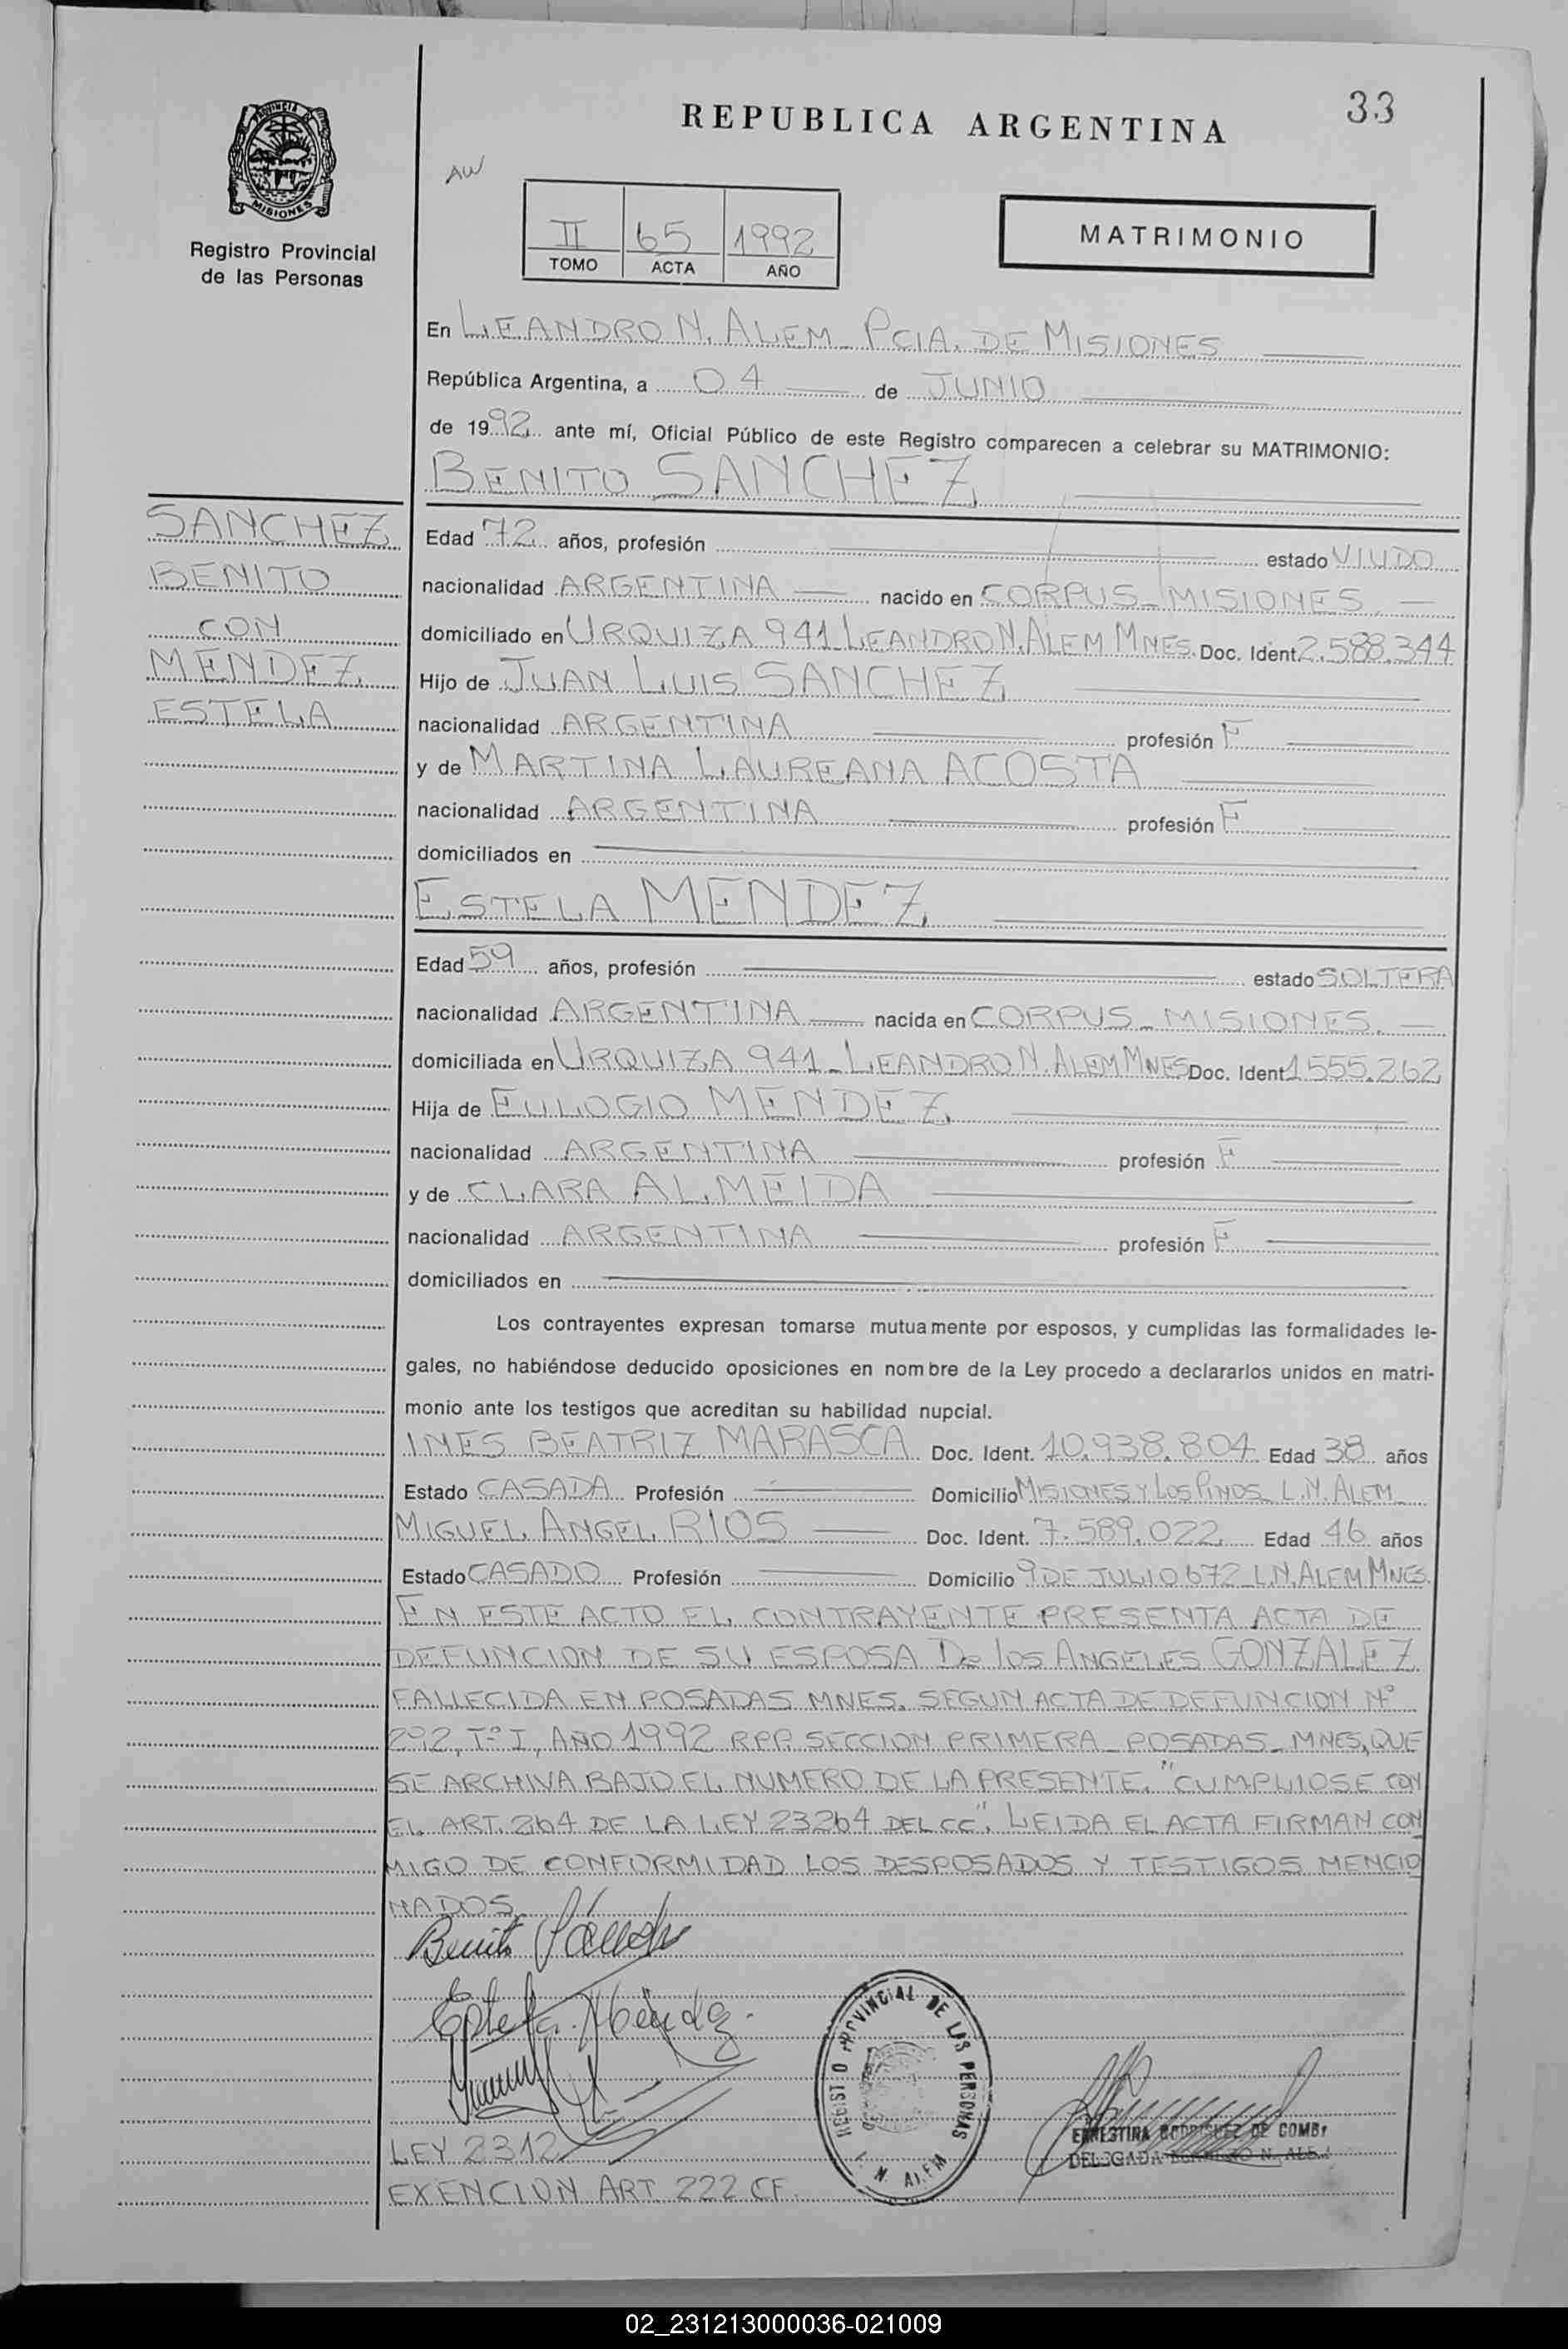 33
REPUBLICA ARGENTINA
AW
PROVINCIA DE
MISIONES
Registro Provincial
de las Personas
II 65 1992
TOMO ACTA AÑO
MATRIMONIO
En LEANDRO N. ALEM_ PCIA. DE MISIONES
República Argentina, a 04 de JUNIO
de 1992 ante mí, Oficial Público de este Registro comparecen a celebrar su MATRIMONIO:
BENITO SANCHEZ
SANCHEZ
BENITO
CON
MENDEZ
ESTELA
Edad 72 años, profesión estado VIUDO
nacionalidad ARGENTINA nacido en CORPUS_MISIONES.
domiciliado en URQUIZA 941_LEANDRO N. ALEM MNES. Doc. Ident. 2.588.344
Hijo de JUAN LUIS SANCHEZ
nacionalidad ARGENTINA profesión F
y de MARTINA LAUREANA ACOSTA
nacionalidad ARGENTINA profesión F
domiciliados en
ESTELA MENDEZ
Edad 59 años, profesión estado SOLTERA
nacionalidad ARGENTINA nacida en CORPUS_MISIONES.
domiciliada en URQUIZA 941_LEANDRO N. ALEM MNES Doc. Ident 1.555.262
Hija de EULOGIO MENDEZ
nacionalidad ARGENTINA profesión F
y de CLARA ALMEIDA
nacionalidad ARGENTINA profesión F
domiciliados en
Los contrayentes expresan tomarse mutuamente por esposos, y cumplidas las formalidades le-
gales, no habiéndose deducido oposiciones en nombre de la Ley procedo a declararlos unidos en matri-
monio ante los testigos que acreditan su habilidad nupcial.
INES BEATRIZ MARASCA Doc. Ident. 10.938.804 Edad 38 años
Estado CASADA Profesión Domicilio MISIONES Y LOS PINOS_ L.N. ALEM_
MIGUEL ANGEL RIOS Doc. Ident. 7.589.022 Edad 46 años
Estado CASADO Profesión Domicilio 9 DE JULIO 672_L.N. ALEM MNES.
EN ESTE ACTO EL CONTRAYENTE PRESENTA ACTA DE
DEFUNCION DE SU ESPOSA De los ANGELES GONZALEZ
FALLECIDA EN POSADAS MNES. SEGUN ACTA DE DEFUNCION Nº
292, Tº I, AÑO 1992 RPP. SECCION PRIMERA_ POSADAS_ MNES, QUE
SE ARCHIVA BAJO EL NUMERO DE LA PRESENTE. "CUMPLIOSE CON
EL ART. 264 DE LA LEY 23264 DEL CC". LEIDA EL ACTA FIRMAN CON
MIGO DE CONFORMIDAD LOS DESPOSADOS Y TESTIGOS MENCIO
NADOS.
Benito Sánchez
Estela Méndez.
REGISTRO PROVINCIAL DE LAS PERSONAS
L. N. ALEM
ERNESTINA RODRIGUEZ DE COMBY
DELEGADA LEANDRO N. ALEM
LEY 2312
EXENCION ART. 222 CF.
02_231213000036-021009